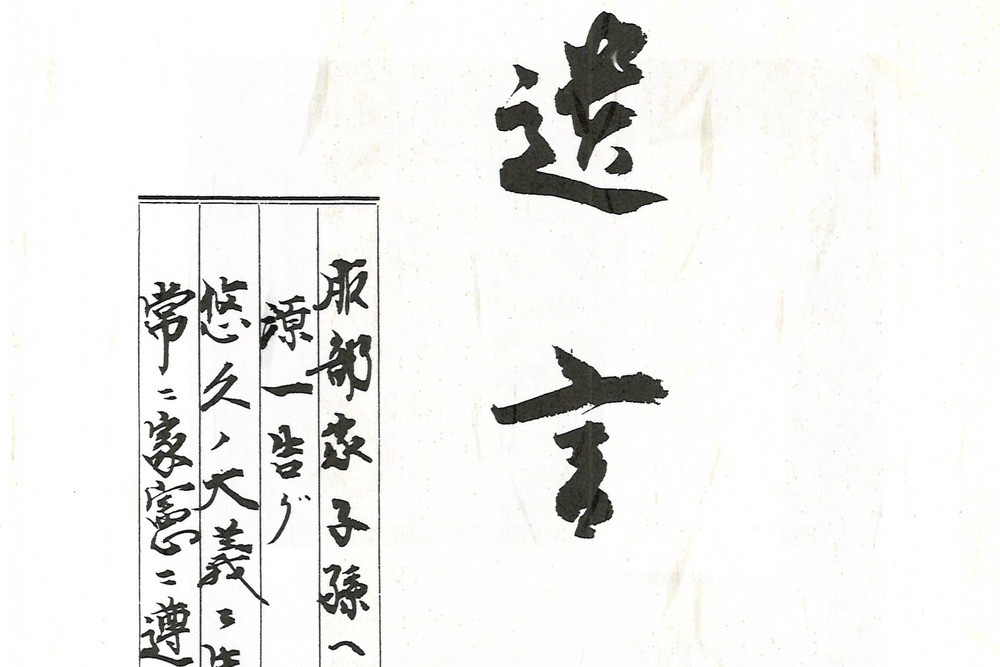 遺言
服部家子孫ヘ
源一告グ
悠久ノ大義ニ生
常ニ家憲ニ遵